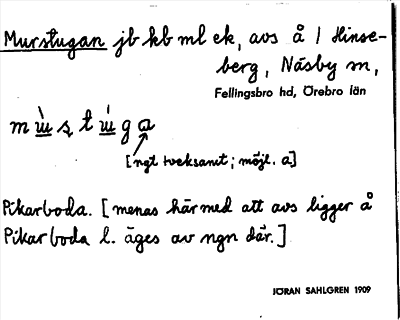 Murstugan jb kb ml ek, avs å / Hinse-
berg, Näsby sn,
Fellingsbro hd, Örebro län
[ngt tveksamt; möjl. a]
Pikarboda. [menas härmed att avs ligger å
Pikarboda l. äges av ngn där.]
JÖRAN SAHLGREN 1909